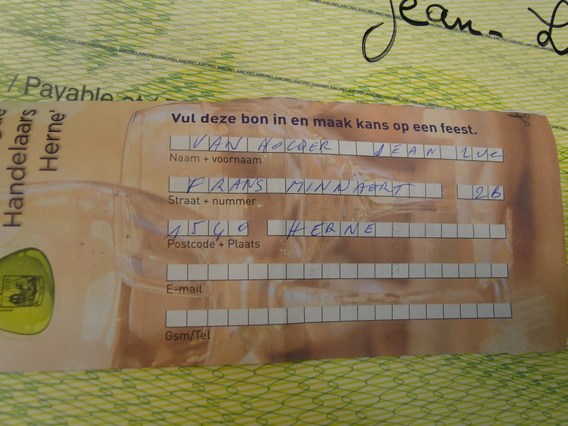 Jean-L
/ Payable
Handelaars
Herne'
Vul deze bon in en maak kans op een feest.
VAN HOLDER JEAN LUC
Naam + voornaam
FRANS MINNAERT 2B
Straat + nummer
1540 HERNE
Postcode + Plaats
E-mail
Gsm/Tel